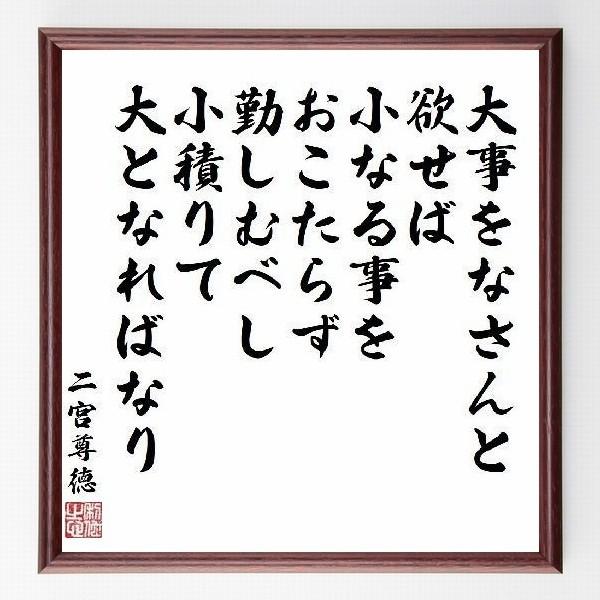 大事をなさんと
欲せば
小なる事を
おこたらず
勤しむべし
小積りて
大となればなり
二宮尊徳